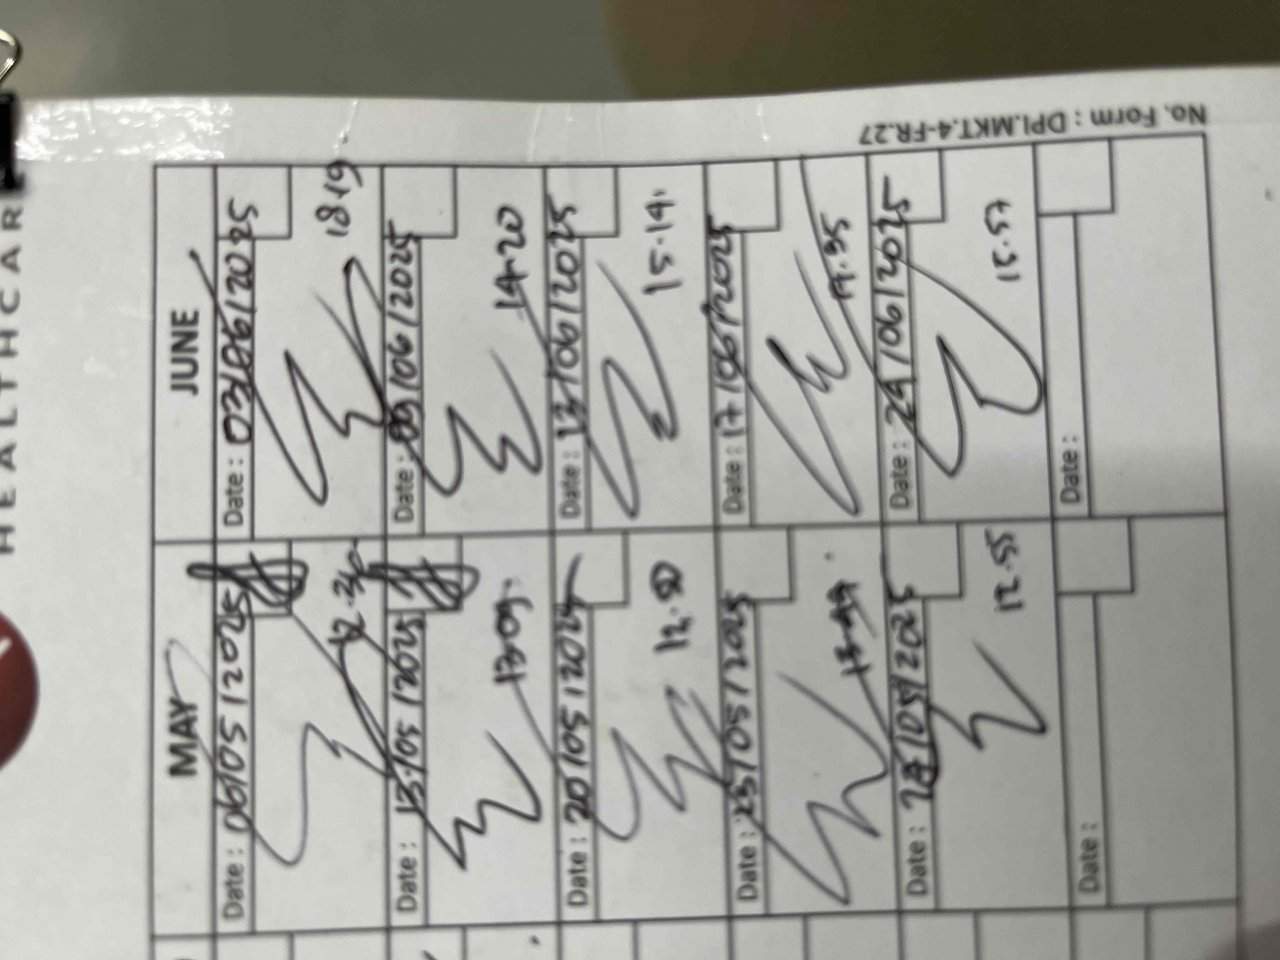 HEALTHCAR
No. Form : DPI.MKT.4-FR.27
MAY
Date : 06/05/2025
Date : 13/05/2025
13.09
Date : 20/05/2025
12.50
Date : 23/05/2025
13.44
Date : 28/05/2025
12.55
Date :
JUNE
Date : 03/06/2025
18.19
Date : 09/06/2025
14.20
Date : 13/06/2025
15.14
Date : 17/06/2025
14.35
Date : 24/06/2025
15.57
Date :